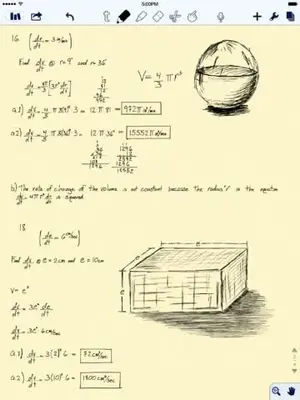 5:00PM
16 (dr/dt = 3 in/min)
Find dv/dt @ r=9 and r=36
V = 4/3 πr³
dv/dt = 4π/3 [3r² dr/dt]
a.1) dv/dt = 4/3 π 3(9)² 3 = 12 π 81 = 972π in³/min
a.2) dv/dt = 4/3 π 3(36)² 3 = 12 π 36² = 15552π in³/min
1296
1296
15552
b) The rate of change of the volume is not constant because the radius "r" in the equation
dv/dt = 4πr² dr/dt is squared.
18
(de/dt = 6 cm/sec)
Find dv/dt @ e = 2cm and e = 10cm
e
e
e
V = e³
dv/dt = 3e² de/dt
dv/dt = 3e² 6cm/sec
a.1) dv/dt = 3(2)² 6 = 72 cm³/sec
a.2) dv/dt = 3(10)² 6 = 1800 cm³/sec